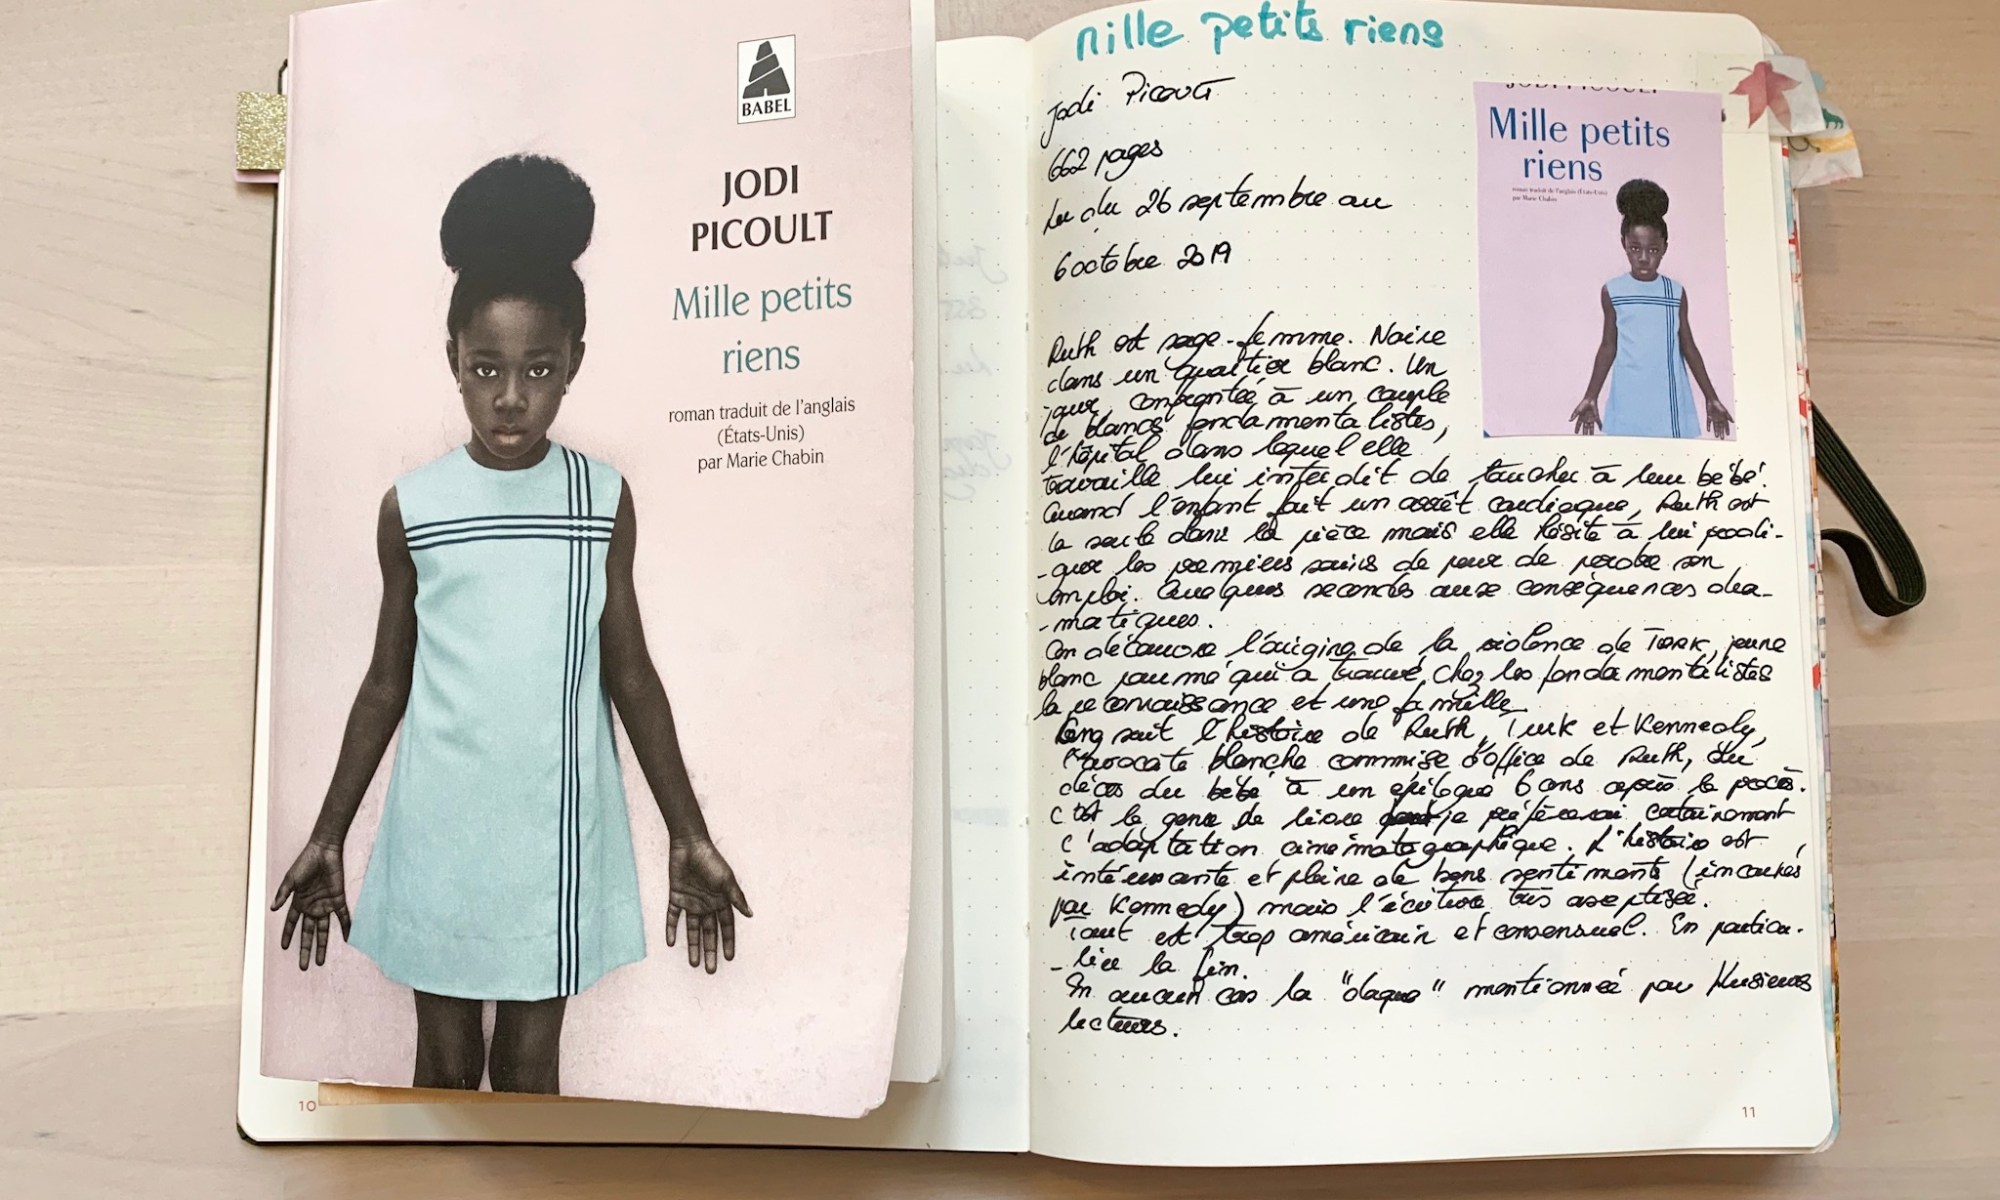 BABEL
JODI
PICOULT
Mille petits
riens
roman traduit de l'anglais
(États-Unis)
par Marie Chabin
10
mille petits riens
Jodi Picoult
662 pages
Lu du 26 septembre au
6 octobre 2019
JODI PICOULT
Mille petits
riens
roman traduit de l'anglais (États-Unis)
par Marie Chabin
Ruth est sage-femme. Noire
dans un quartier blanc. Un
jour, confrontée à un couple
de blancs fondamentalistes,
l'hôpital dans lequel elle
travaille lui interdit de toucher à leur bébé.
Quand l'enfant fait un arrêt cardiaque, Ruth est
la seule dans la pièce mais elle hésite à lui prodi-
-guer les premiers soins de peur de perdre son
emploi. Quelques secondes aux conséquences dra-
-matiques.
On découvre l'origine de la violence de Turk, jeune
blanc paumé qui a trouvé chez les fondamentalistes
la reconnaissance et une famille.
suit l'histoire de Ruth, Turk et Kennedy,
l'avocate blanche commise d'office de Ruth, du
décès du bébé à un épilogue 6 ans après le procès.
C'est le genre de livre je préfèrerai certainement
l'adaptation cinématographique. L'histoire est
intéressante et pleine de bons sentiments (incarnés
par Kennedy) mais l'écriture très aseptisée.
Tout est trop américain et consensuel. En particu-
-lier la fin.
En aucun cas la "claque" mentionnée par plusieurs
lecteurs.
11